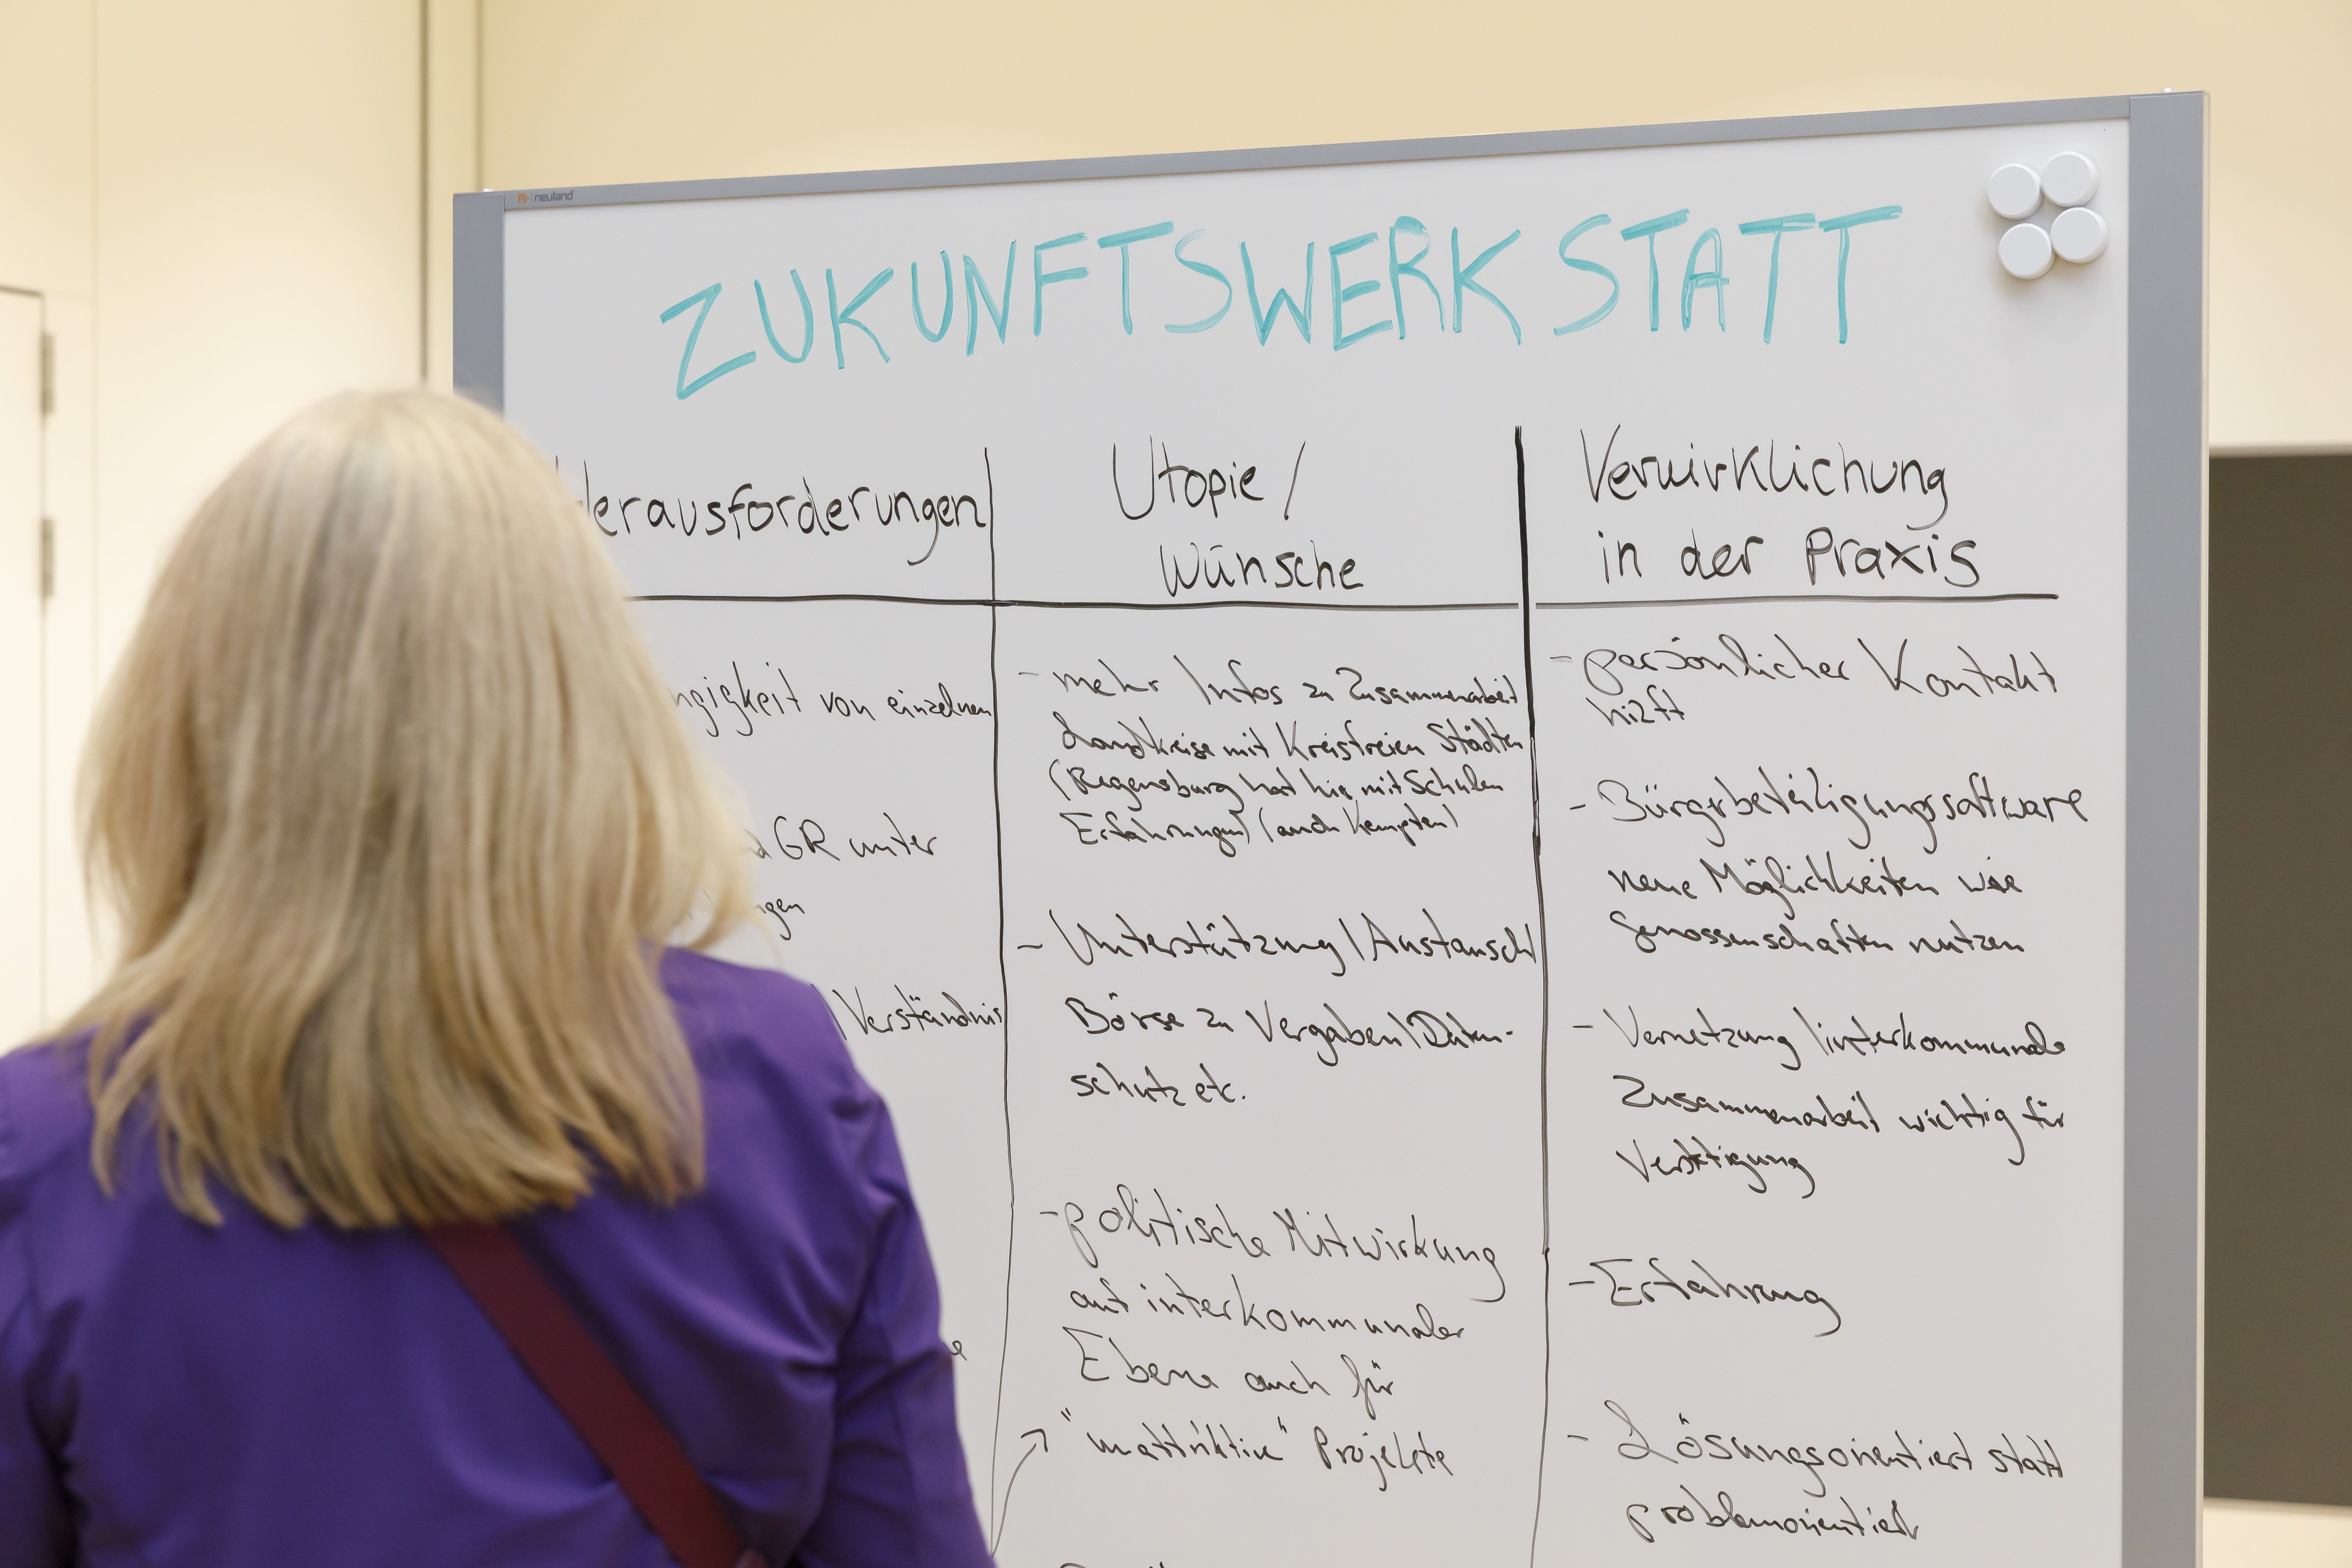 neuland
ZUKUNFTSWERKSTATT
Herausforderungen
ngigkeit von einzelnen
d GR unter
ngen
/Verständnis
Utopie /
Wünsche
- mehr Infos zu Zusammenarbeit
Landkreise mit Kreisfreien Städten
(Regensburg hat hie mit Schulen
Erfahrungen) (auch Kempten)
- Unterstützung/Austausch/
Börse zu Vergaben/Daten-
schutz etc.
- politische Mitwirkung
auf interkommunaler
Ebene auch für
"unattraktive" Projekte
Verwirklichung
in der Praxis
- persönlicher Kontakt
hilft
- Bürgerbeteiligungssoftware
neue Möglichkeiten wie
Genossenschaften nutzen
- Vernetzung/interkommunale
Zusammenarbeit wichtig für
- Erfahrung
- Lösungsorientiert statt
problemorientiert